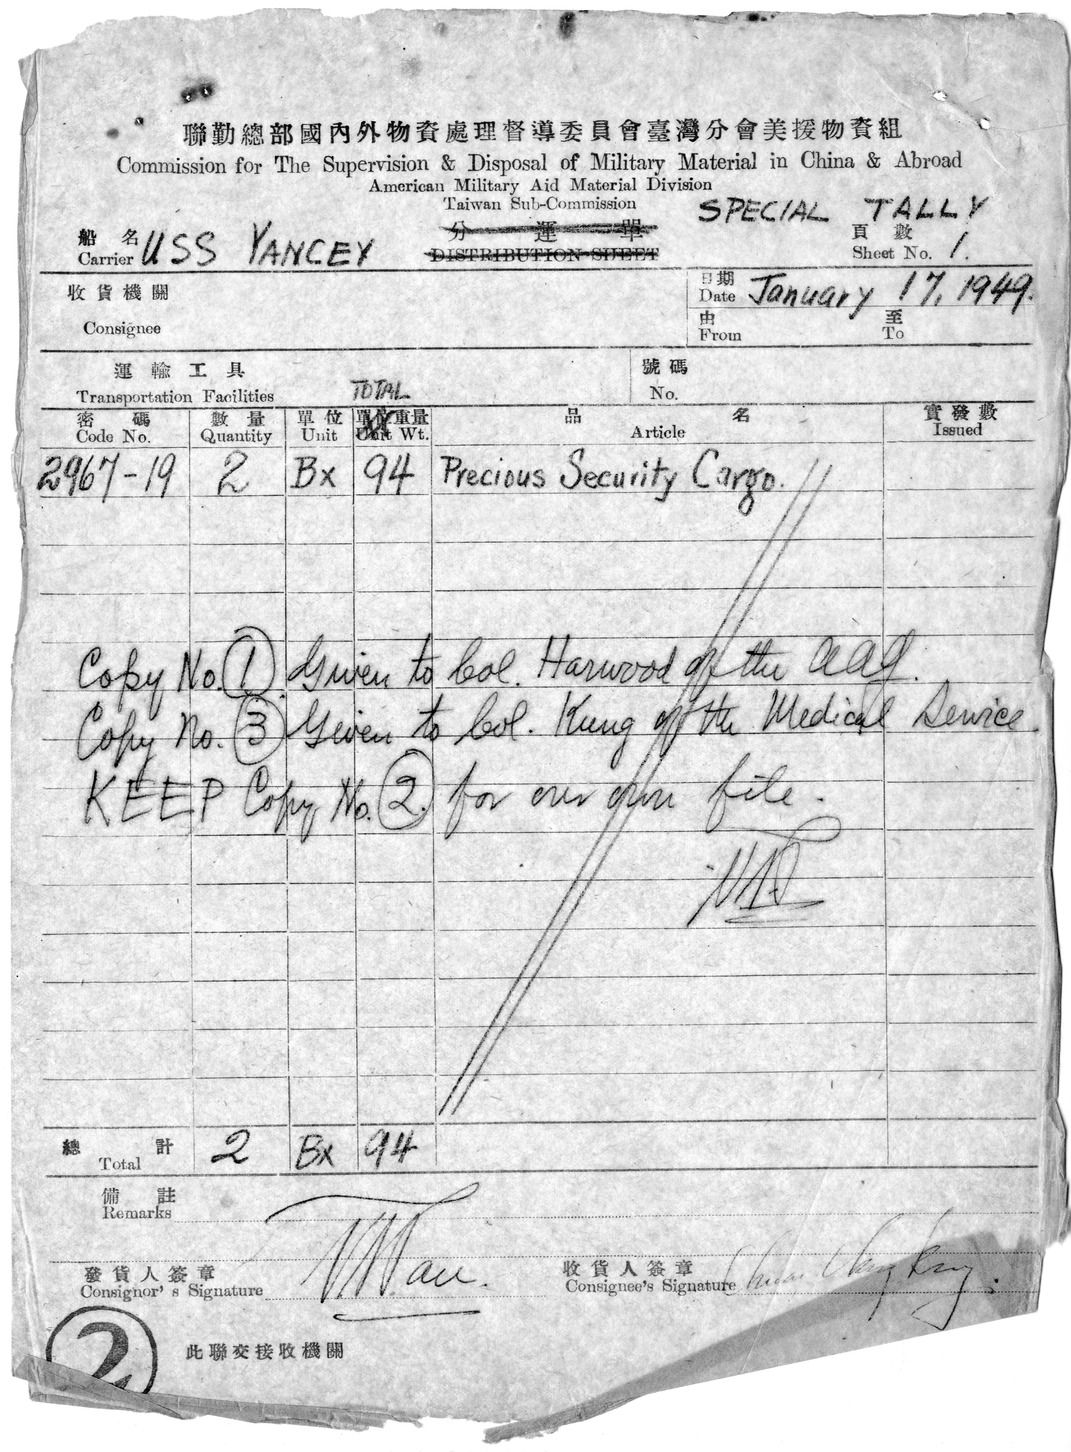 聯勤總部國內外物資處理督導委員會臺灣分會美援物資組
Commission for The Supervision & Disposal of Military Material in China & Abroad
American Military Aid Material Division
Taiwan Sub-Commission
SPECIAL TALLY
分 運 單
DISTRIBUTION SHEET
船 名
Carrier USS YANCEY
頁 數
Sheet No. 1.
收貨機關
Consignee
日期
Date January 17, 1949.
由 至
From To
運 輸 工 具
Transportation Facilities
號碼
No.
TOTAL
密 碼 數 量 單 位 單位重量 品 名 實發數
Code No. Quantity Unit Unit Wt. Article Issued
2967-19 2 Bx 94 Precious Security Cargo.
Copy No. 1 Given to Col. Harwood of the AAG.
Copy No. 3 Given to Col. Kung of the Medical Service.
KEEP Copy No. 2 for our own file.
總 計
Total 2 Bx 94
備 註
Remarks
發貨人簽章 收貨人簽章
Consignor's Signature Consignee's Signature
2 此聯交接收機關